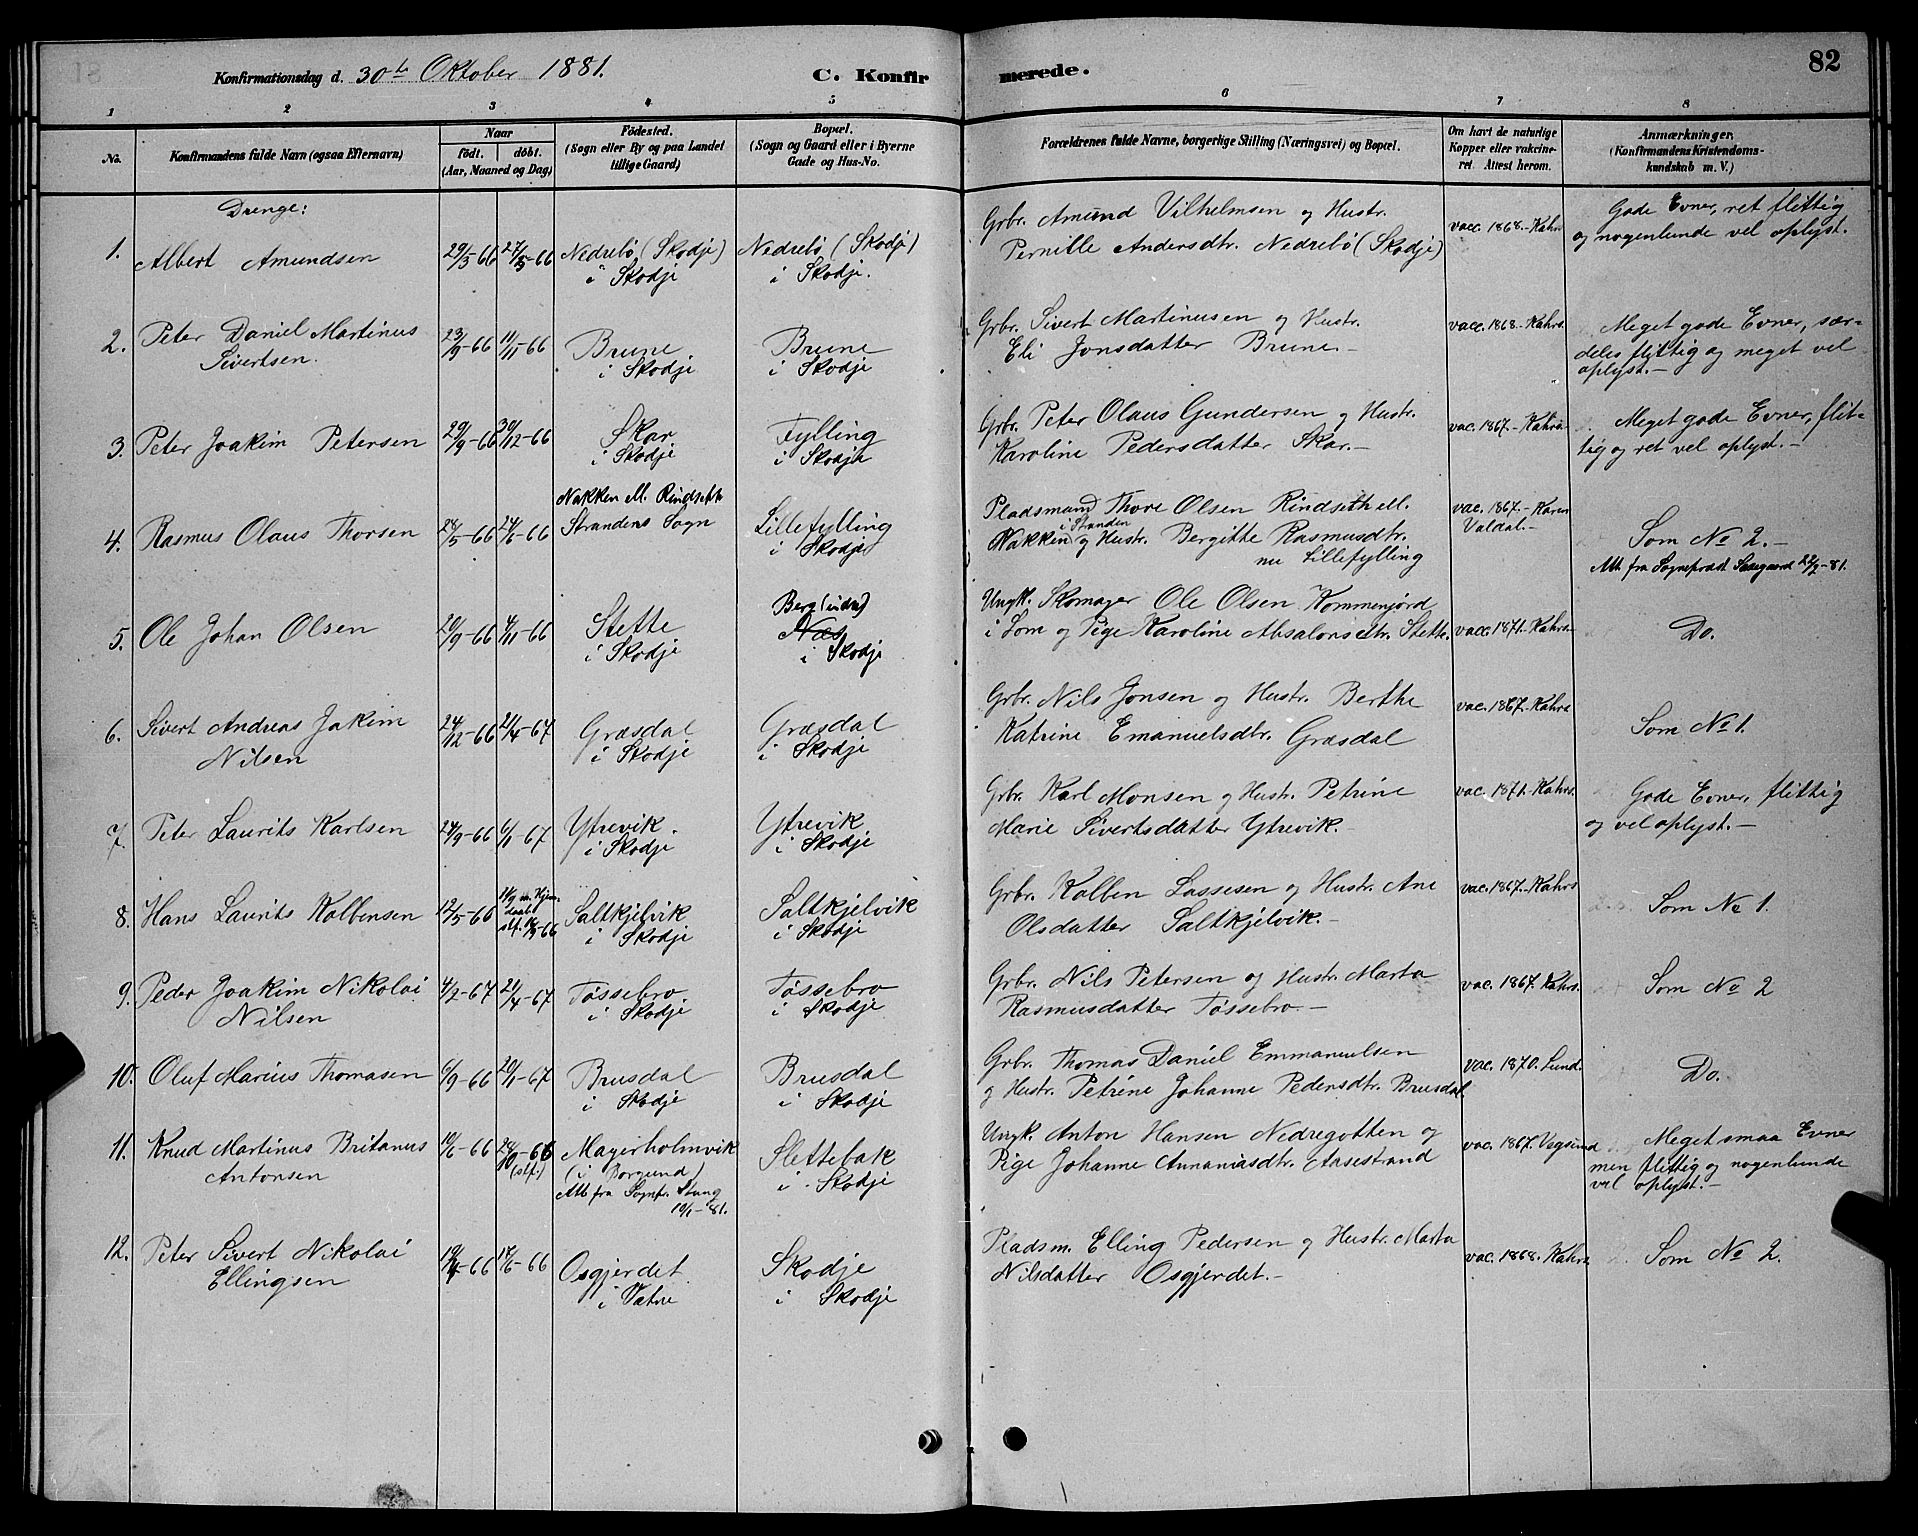 Konfirmationsdag d. 30te Oktober 1881. C. Konfirmerede. 82
1 2 3 4 5 6 7 8
No.
Konfirmandens fulde Navn (ogsaa Efternavn)
Naar
födt. döbt.
(Aar, Maaned og Dag)
Födested.
(Sogn eller By og paa Landet
tillige Gaard)
Bopæl.
(Sogn og Gaard eller i Byerne
Gade og Hus-No.
Forældrenes fulde Navne, borgerlige Stilling (Næringsvei) og Bopæl.
Om havt de naturlige
Kopper eller vakcine-
ret. Attest herom.
Anmærkninger.
(Konfirmandens Kristendoms-
kundskab m. V.)
Drenge:
1. Albert Amundsen
29/3-66 27/5-66
Nedrebö (Skodje)
i Skodje
Nedrebö (Skodje)
i Skodje.
Grbr. Amund Vilhelmsen og Hustr.
Pernille Andersdtr. Nedrebö (Skodje)
vacc. 1868.-Kahrs
Gode Evner, ret flittig
og nogenlunde vel oplyst.
2. Peter Daniel Martinus
Sivertsen.
23/9-66 11/11-66
Brune
i Skodje
Brune
i Skodje
Grbr. Sivert Martinusen og Hustr.
Eli Jonsdatter Brune.-
vacc. 1868.-Kahrs.
Meget gode Evner, sær-
deles flittig og meget vel
oplyst.-
3. Peter Joakim Petersen
29/9-66 30/12-66
Skar
i Skodje
Fylling
i Skodje
Grbr. Peter Olaus Gundersen og Hustr.
Karoline Pedersdatter Skar.-
vac. 1867.-Kahrs
Meget gode Evner, flit-
tig og ret vel oplyst.-
4. Rasmus Olaus Thorsen
24/6-66
Nakken ell. Rindseth
Strandens Sogn
Lillefylling
i Skodje
Pladsmand Thore Olsen Rindseth ell.
Nakken i Stranden og Hustr. Bergitte Rasmusdtr.
nu Lillefylling
vac. 1867.-Karen
Valdal.-
Som No 2.-
Att. fra Sogneprast 22/2-81.
5. Ole Johan Olsen
20/9-66 4/11-66
Stette
i Skodje
Berg (indre)
Næs
i Skodje
Ungk. Skomager Ole Olsen Kommenjörd
i Lom og Pige Karoline Absalonsdtr. Stette.
vacc. 1871.-Kahrs.
Do.
6. Sivert Andreas Jakim
Nilsen
24/12-66 21/4-67
Græsdal
i Skodje
Græsdal
i Skodje
Grbr. Nils Jonsen og Hustr. Berthe
Katrine Emanuelsdtr. Græsdal
vac. 1867.-Kahrs
Som No 1.
7. Peter Laurits Karlsen
24/9-66 6/1-67
Ytrevik.
i Skodje
Ytrevik
i Skodje
Grbr. Karl Monsen og Hustr. Petrine
Marie Sivertsdatter Ytrevik.-
vac. 1871.-Kahrs.
Gode Evner, flittig
og vel oplyst.-
8. Hans Laurits Kolbensen
12/5-66 Hjem-
daabt
stf. -66
Saltkjelvik
i Skodje
Saltkjelvik
i Skodje
Grbr. Kolben Lassesen og Hustr. Ane
Olsdatter Saltkjelvik.-
vac. 1867.-Kahrs
Som No 1.
9. Peder Joakim Nikolai
Nilsen
4/2-67 21/4-67
Tössebro
i Skodje
Tössebro
i Skodje
Grbr. Nils Petersen og Hustr. Marta
Rasmusdatter Tössebro.-
vac. 1867. Kahrs.
Som No 2
10. Oluf Marius Thomasen
6/9-66 20/1-67
Brusdal
i Skodje
Brusdal
i Skodje
Grbr. Thomas Daniel Emmanuelsen
og Hustr. Petrine Johanne Pedersdtr. Brusdal.
vac. 1870. Lund.
Do.
11. Knud Martinus Britanus
Antonsen
10/6-66 -66
(stf.)
Magerholmvik
(i Borgund)
Att. fra Sognpr. Stang
10/1-81.
Slettebak
i Skodje
Ungk. Anton Hansen Nedregotten og
Pige Johanne Annaniasdtr. Aasestrand
vac. 1867. Vegsund
Meget smaa Evner
men flittig og nogenlunde
vel oplyst.-
12. Peter Sivert Nikolai
Ellingsen
19/4-66 17/6-66
Osgjerdet
i Vatne
Skodje
i Skodje
Pladsm. Elling Pedersen og Hustr. Marta
Nilsdatter Osgjerdet.-
vac. 1868. Kahrs
Som No 2.